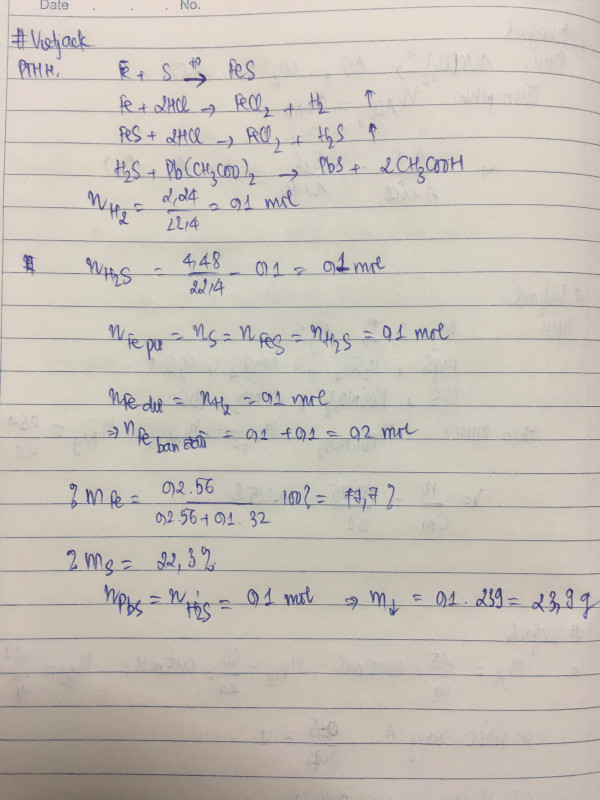 Date . . . No.
#Vietjack
PTHH. Fe + S -t°-> FeS
Fe + 2HCl → FeCl₂ + H₂ ↑
FeS + 2HCl → FeCl₂ + H₂S ↑
H₂S + Pb(CH₃COO)₂ → PbS + 2CH₃COOH
n H₂ = 2,24/22,4 = 0,1 mol
n H₂S = 4,48/22,4 - 0,1 = 0,1 mol
n Fe pư = n S = n FeS = n H₂S = 0,1 mol
n Fe dư = n H₂ = 0,1 mol
⇒ n Fe ban = 0,1 + 0,1 = 0,2 mol
% m Fe = 0,2.56/0,2.56+0,1.32 . 100% = 77,7%
% m S = 22,3%
n PbS = n H₂S = 0,1 mol ⇒ m↓ = 0,1 . 239 = 23,9 g